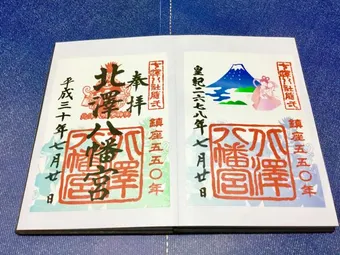 奉拝
北澤八幡宮
平成三十年七月廿日
鎮座五五〇年
北澤八幡宮
皇紀二六七八年七月廿日
鎮座五五〇年
北澤八幡宮